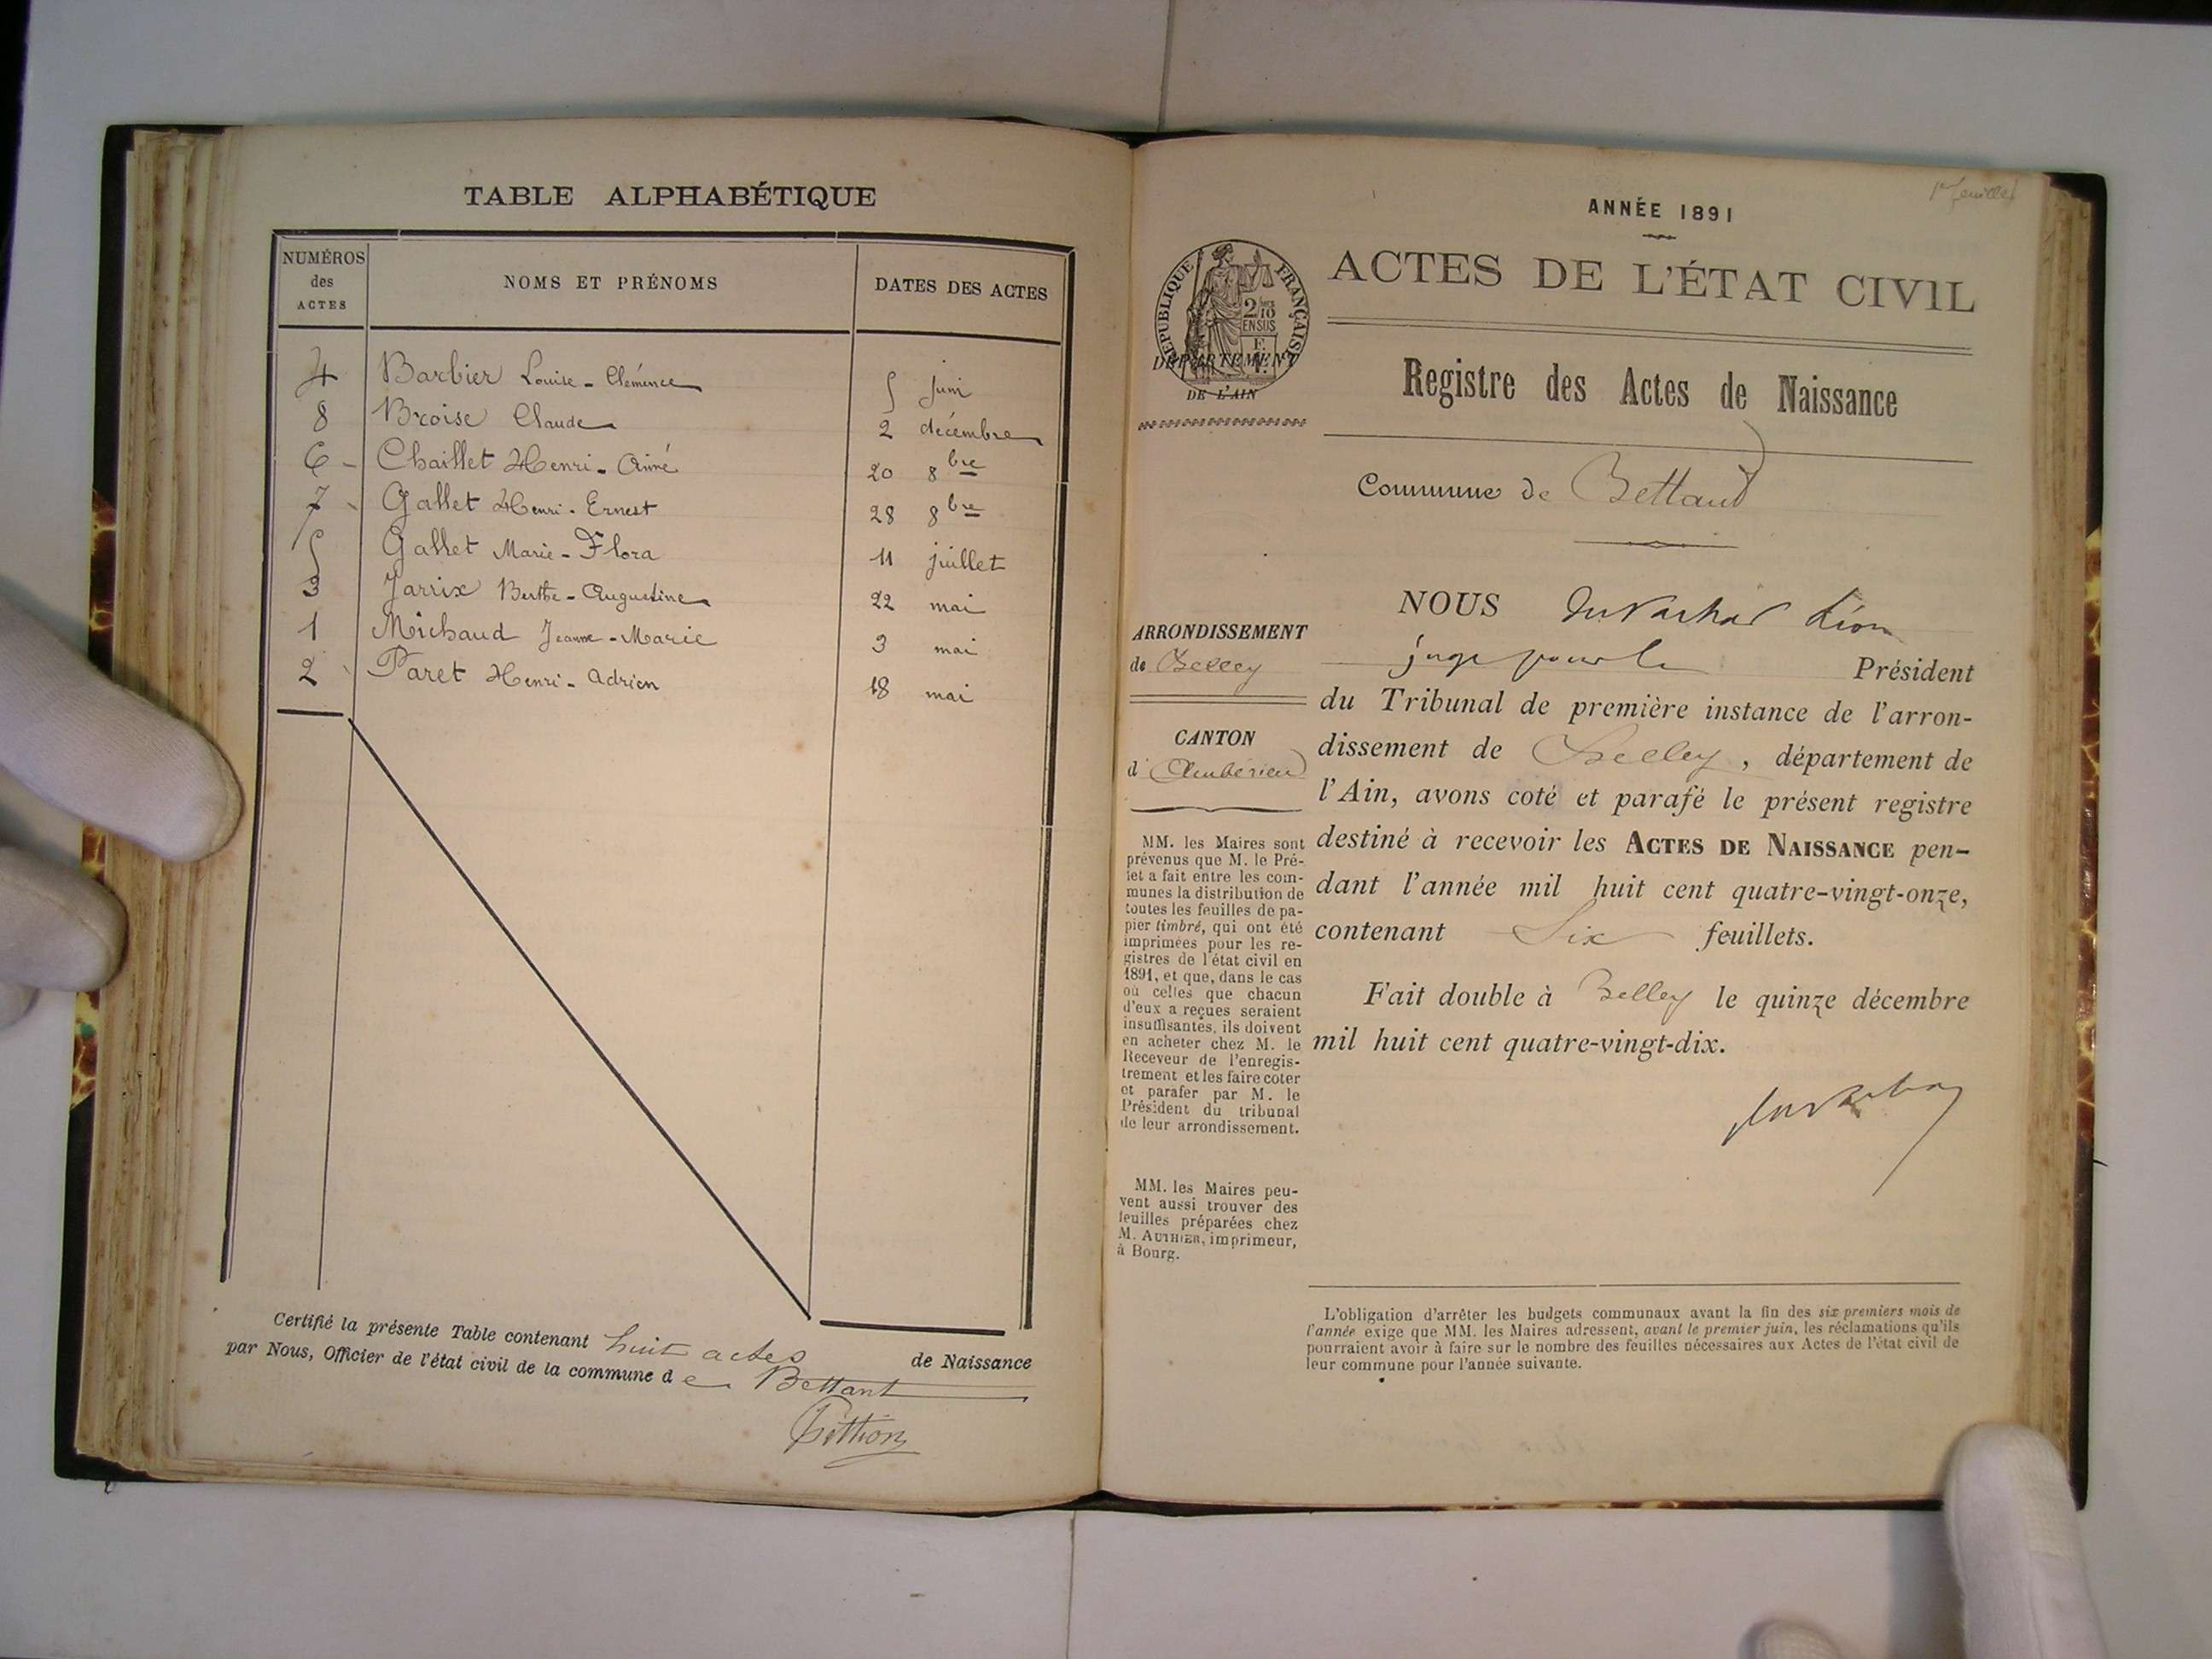 TABLE ALPHABÉTIQUE
NUMÉROS des ACTES
NOMS ET PRÉNOMS
DATES DES ACTES
4 Barbier Louise - Clémence 5 juin
8 Broise Claude 2 décembre
6 - Chaillet Henri - Aimé 20 8bre
7 - Gallet Henri - Ernest 28 8bre
5 Gallet Marie - Flora 11 juillet
3 Jarrix Berthe - Augustine 22 mai
1 Michaud Jeanne - Marie 3 mai
2 Paret Henri - Adrien 18 mai
Certifié la présente Table contenant huit actes de Naissance
par Nous, Officier de l'état civil de la commune de Bettant
1er feuillet
ANNÉE 1891
RÉPUBLIQUE FRANÇAISE
2/10
EN SUS
DÉPARTEMENT
DE L'AIN
ACTES DE L'ÉTAT CIVIL
Registre des Actes de Naissance
Commune de Bettant
ARRONDISSEMENT
de Belley
CANTON
d'Ambérieu
MM. les Maires sont
prévenus que M. le Pré-
fet a fait entre les com-
munes la distribution de
toutes les feuilles de pa-
pier timbré, qui ont été
imprimées pour les re-
gistres de l'état civil en
1891, et que, dans le cas
où celles que chacun
d'eux a reçues seraient
insuffisantes, ils doivent
en acheter chez M. le
Receveur de l'enregis-
trement et les faire coter
et parafer par M. le
Président du tribunal
de leur arrondissement.
MM. les Maires peu-
vent aussi trouver des
feuilles préparées chez
M. AUTHIER, imprimeur,
à Bourg.
NOUS Léon
juge pour le Président
du Tribunal de première instance de l'arron-
dissement de Belley, département de
l'Ain, avons coté et parafé le présent registre
destiné à recevoir les ACTES DE NAISSANCE pen-
dant l'année mil huit cent quatre-vingt-onze,
contenant Six feuillets.
Fait double à Belley le quinze décembre
mil huit cent quatre-vingt-dix.
L'obligation d'arrêter les budgets communaux avant la fin des six premiers mois de
l'année exige que MM. les Maires adressent, avant le premier juin, les réclamations qu'ils
pourraient avoir à faire sur le nombre des feuilles nécessaires aux Actes de l'état civil de
leur commune pour l'année suivante.